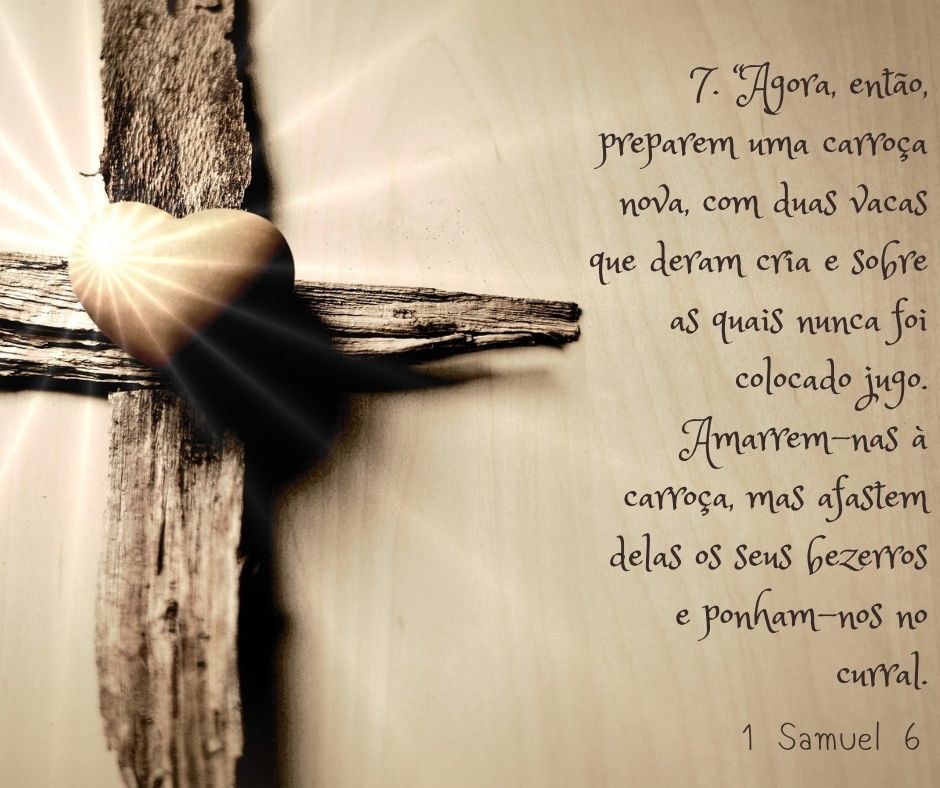 7. “Agora, então,
preparem uma carroça
nova, com duas vacas
que deram cria e sobre
as quais nunca foi
colocado jugo.
Amarrem-nas à
carroça, mas afastem
delas os seus bezerros
e ponham-nos no
curral.
1 Samuel 6